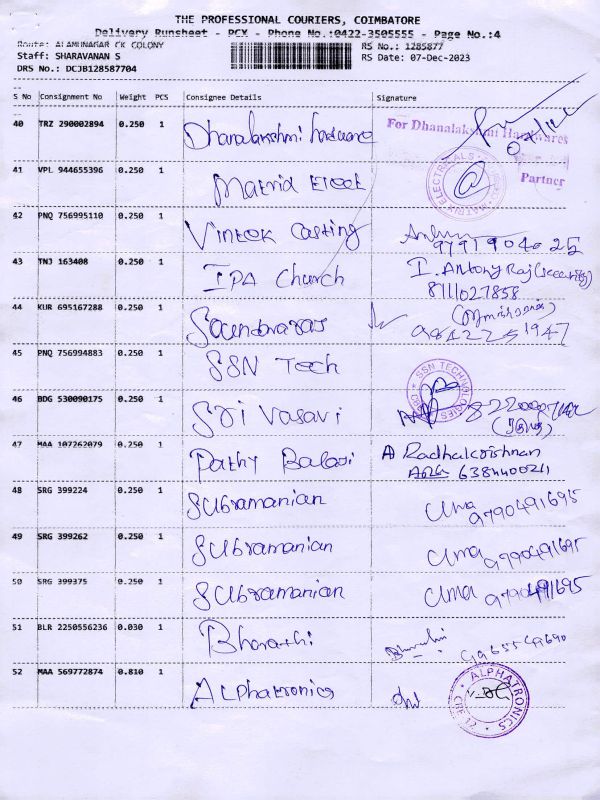 THE PROFESSIONAL COURIERS, COIMBATORE
Delivery Runsheet - PCX - Phone No.:0422-3505555 - Page No.:4
Route: ALAMUNAGAR CK COLONY
RS No.: 1285877
Staff: SHARAVANAN S
RS Date: 07-Dec-2023
DRS No.: DCJB128587704
S No Consignment No Weight PCS Consignee Details Signature
40 TRZ 290002894 0.250 1 Dhanalakshmi hardware
For Dhanalakshmi Hardwares
Partner
41 VPL 944655396 0.250 1 Matrix Elect
MATRIX ELECTRICALS
42 PNQ 756995110 0.250 1 Vintek Casting
43 TNJ 163408 0.250 1 IPA Church I. Antony Raj (security)
8111027858
44 KUR 695167288 0.250 1 Soundararaj
45 PNQ 756994883 0.250 1 SSN Tech
SSN TECHNOLOGIES
46 BDG 530090175 0.250 1 Sri Vasavi
47 MAA 107262079 0.250 1 Pathy Balaji A Radhakrishnan
48 SRG 399224 0.250 1 Subramanian Uma 9790491695
49 SRG 399262 0.250 1 Subramanian Uma 9790491695
50 SRG 399375 0.250 1 Subramanian Uma 9790491695
51 BLR 2250556236 0.030 1 Bharathi
52 MAA 569772874 0.810 1 Alphatronics
ALPHATRONICS